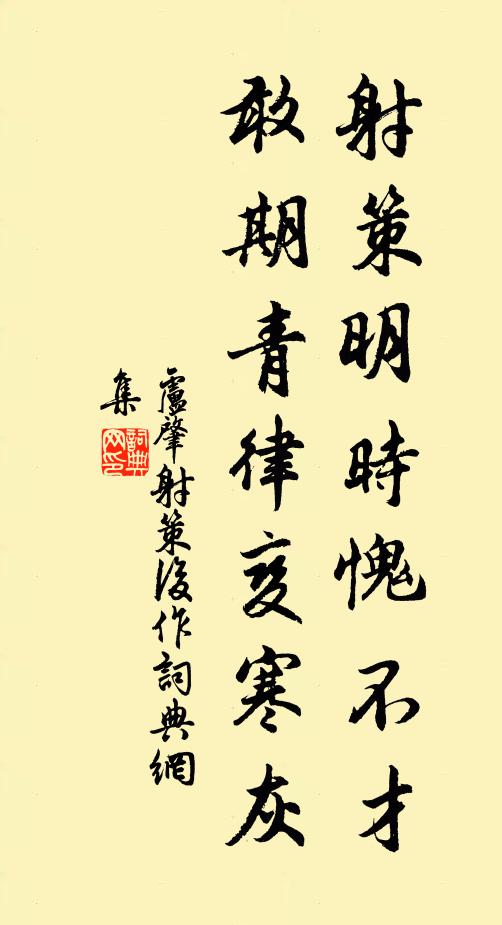 射策明時愧不才
敢期青律变寒灰
盧肇射策後作詞典網
集
詞典網印